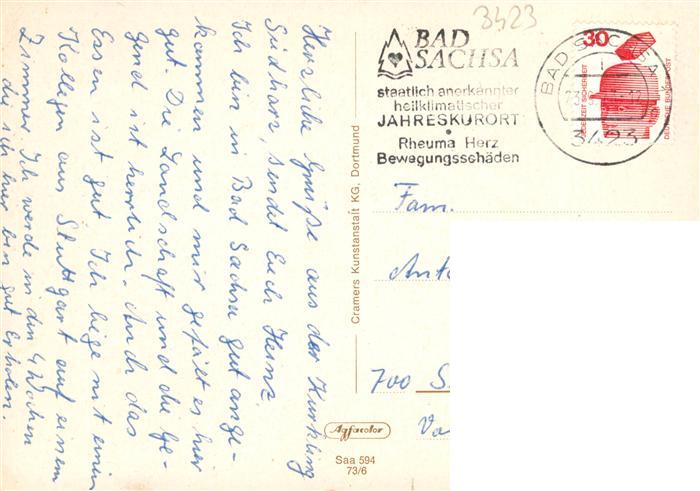 Herzliche Grüße aus der Kurkling
Südharz, sendet Euch Heinz.
Ich bin in Bad Sachsa gut ange-
kommen und mir gefält es hier
gut. Die Landschaft und die Ge-
gend ist herrlich. Auch das
Essen ist gut. Ich liege mit einem
Kollegen aus Stuttgart auf einem
Zimmer. Ich werde in den 4 Wochen
die ich hier bin gut Erholen.
3423
BAD
SACHSA
staatlich anerkannter
heilklimatischer
JAHRESKURORT
Rheuma Herz
Bewegungsschäden
BAD SACHSA
3423
30
JEDERZEIT SICHERHEIT
DEUTSCHE BUNDESPOST
Fam.
700 S
Cramers Kunstanstalt KG, Dortmund
Agfacolor
Saa 594
73/6